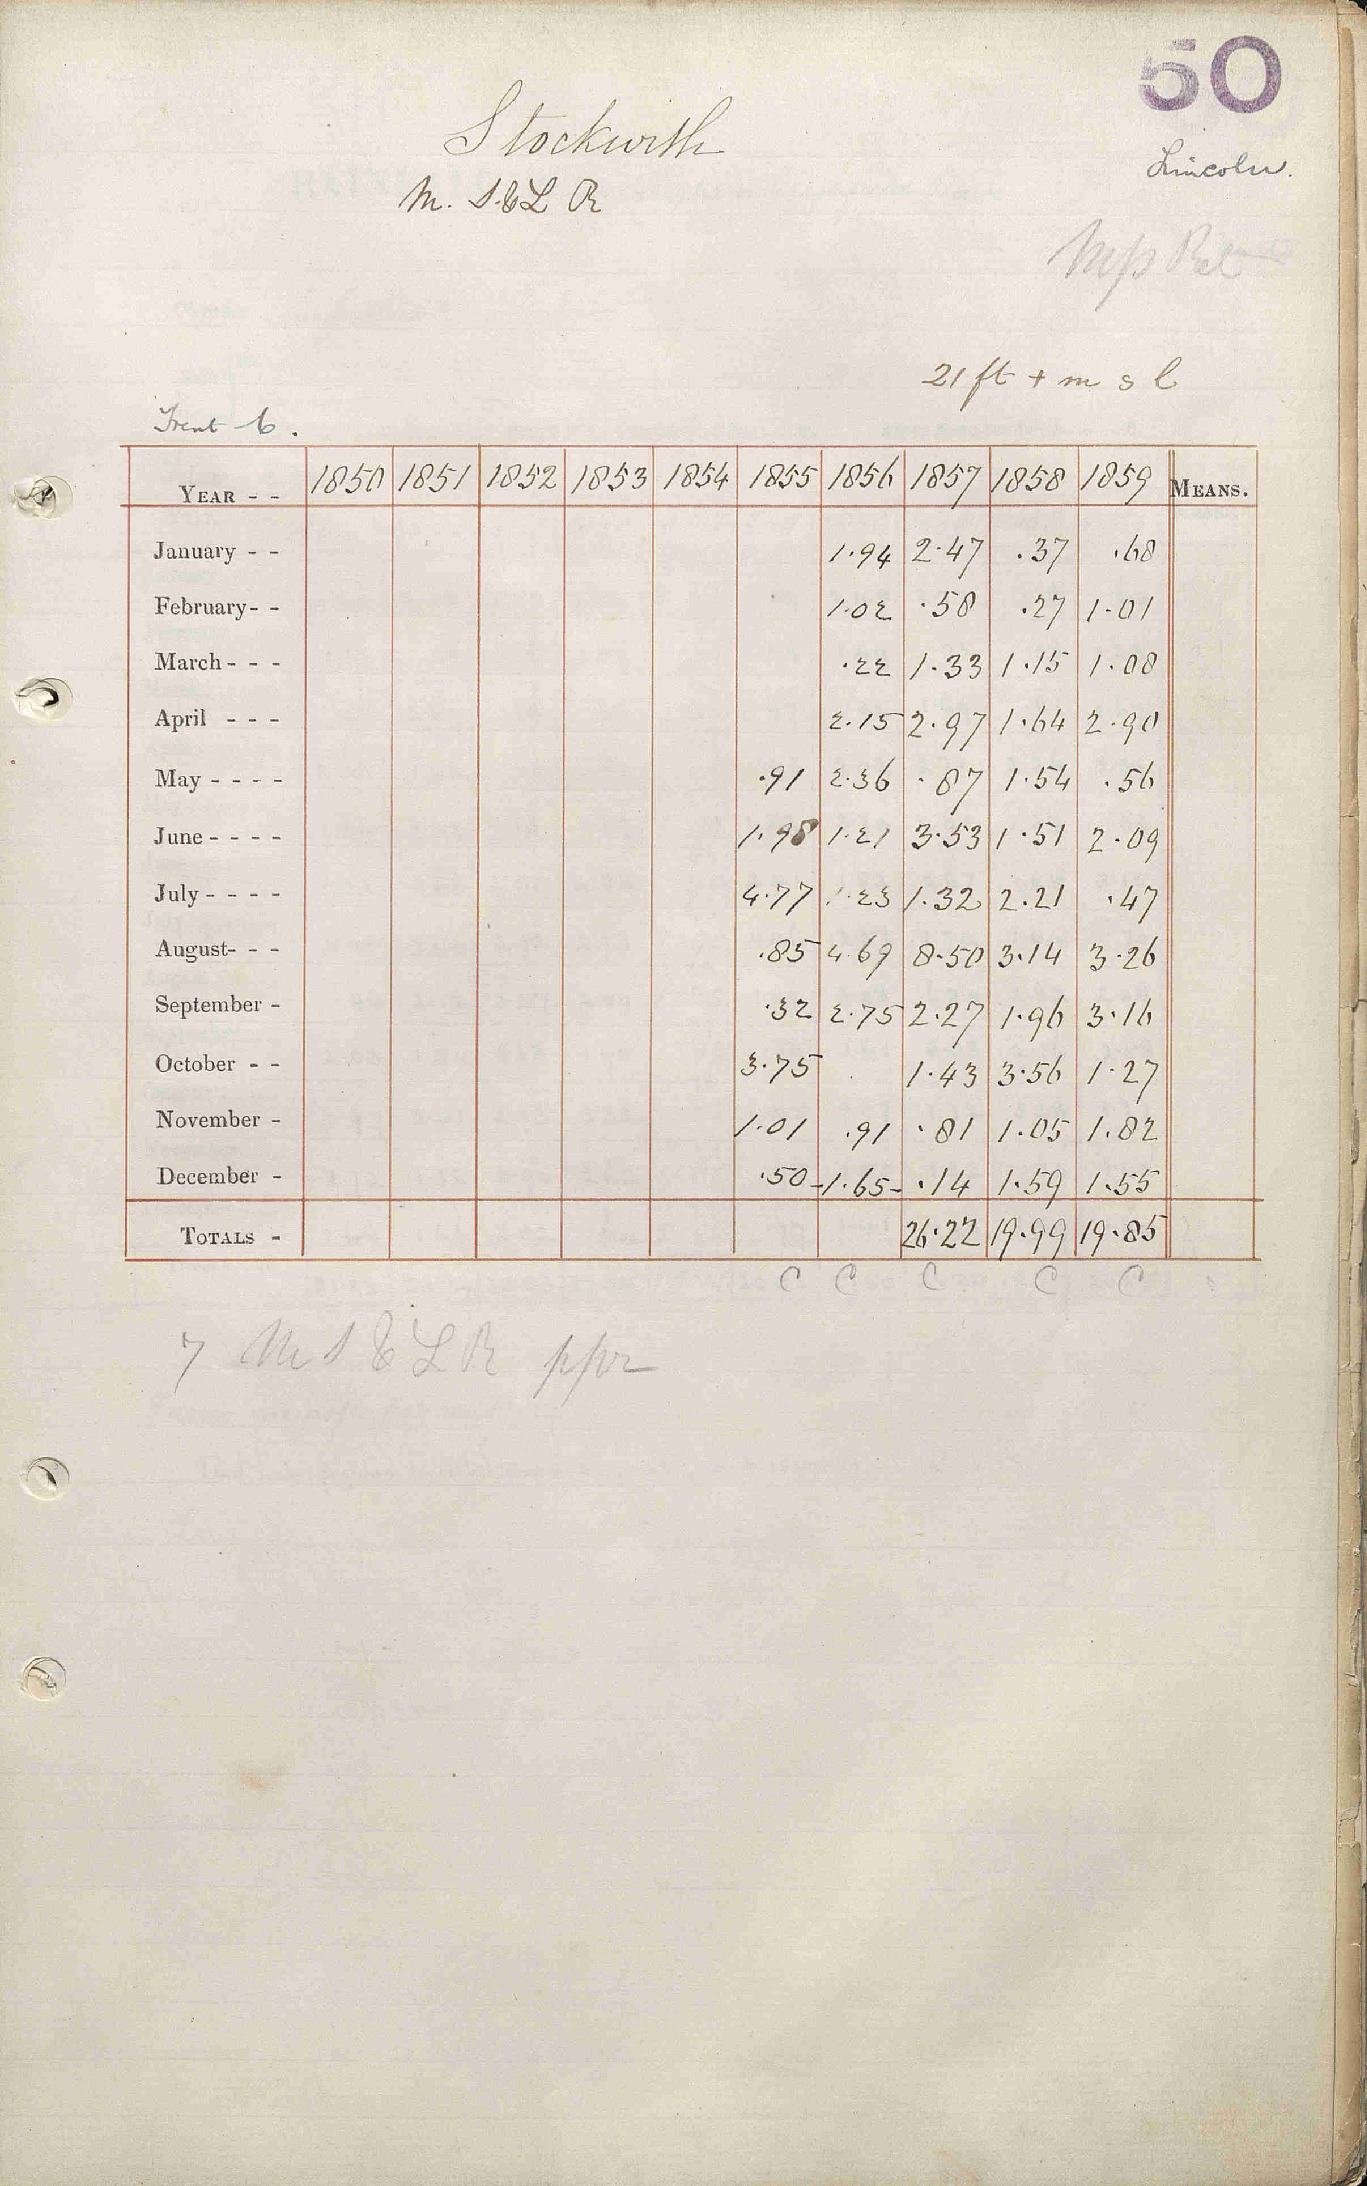 50
Stockwith
Lincoln.
M. S. & L R
21 ft + m s l
Trent 6.
YEAR - - 1850 1851 1852 1853 1854 1855 1856 1857 1858 1859 MEANS.
January - - 1.94 2.47 .37 .68
February - - 1.02 .58 .27 1.01
March - - - .22 1.33 1.15 1.08
April - - - 2.15 2.97 1.64 2.90
May - - - - .91 2.36 .87 1.54 .56
June - - - - 1.98 1.21 3.53 1.51 2.09
July - - - - 4.77 1.23 1.32 2.21 .47
August - - - .85 4.69 8.50 3.14 3.26
September - .32 2.75 2.27 1.96 3.16
October - - 3.75 . 1.43 3.56 1.27
November - 1.01 .91 .81 1.05 1.82
December - .50 1.65 .14 1.59 1.55
TOTALS - 26.22 19.99 19.85
C C C C C
7 M S & L R ppr